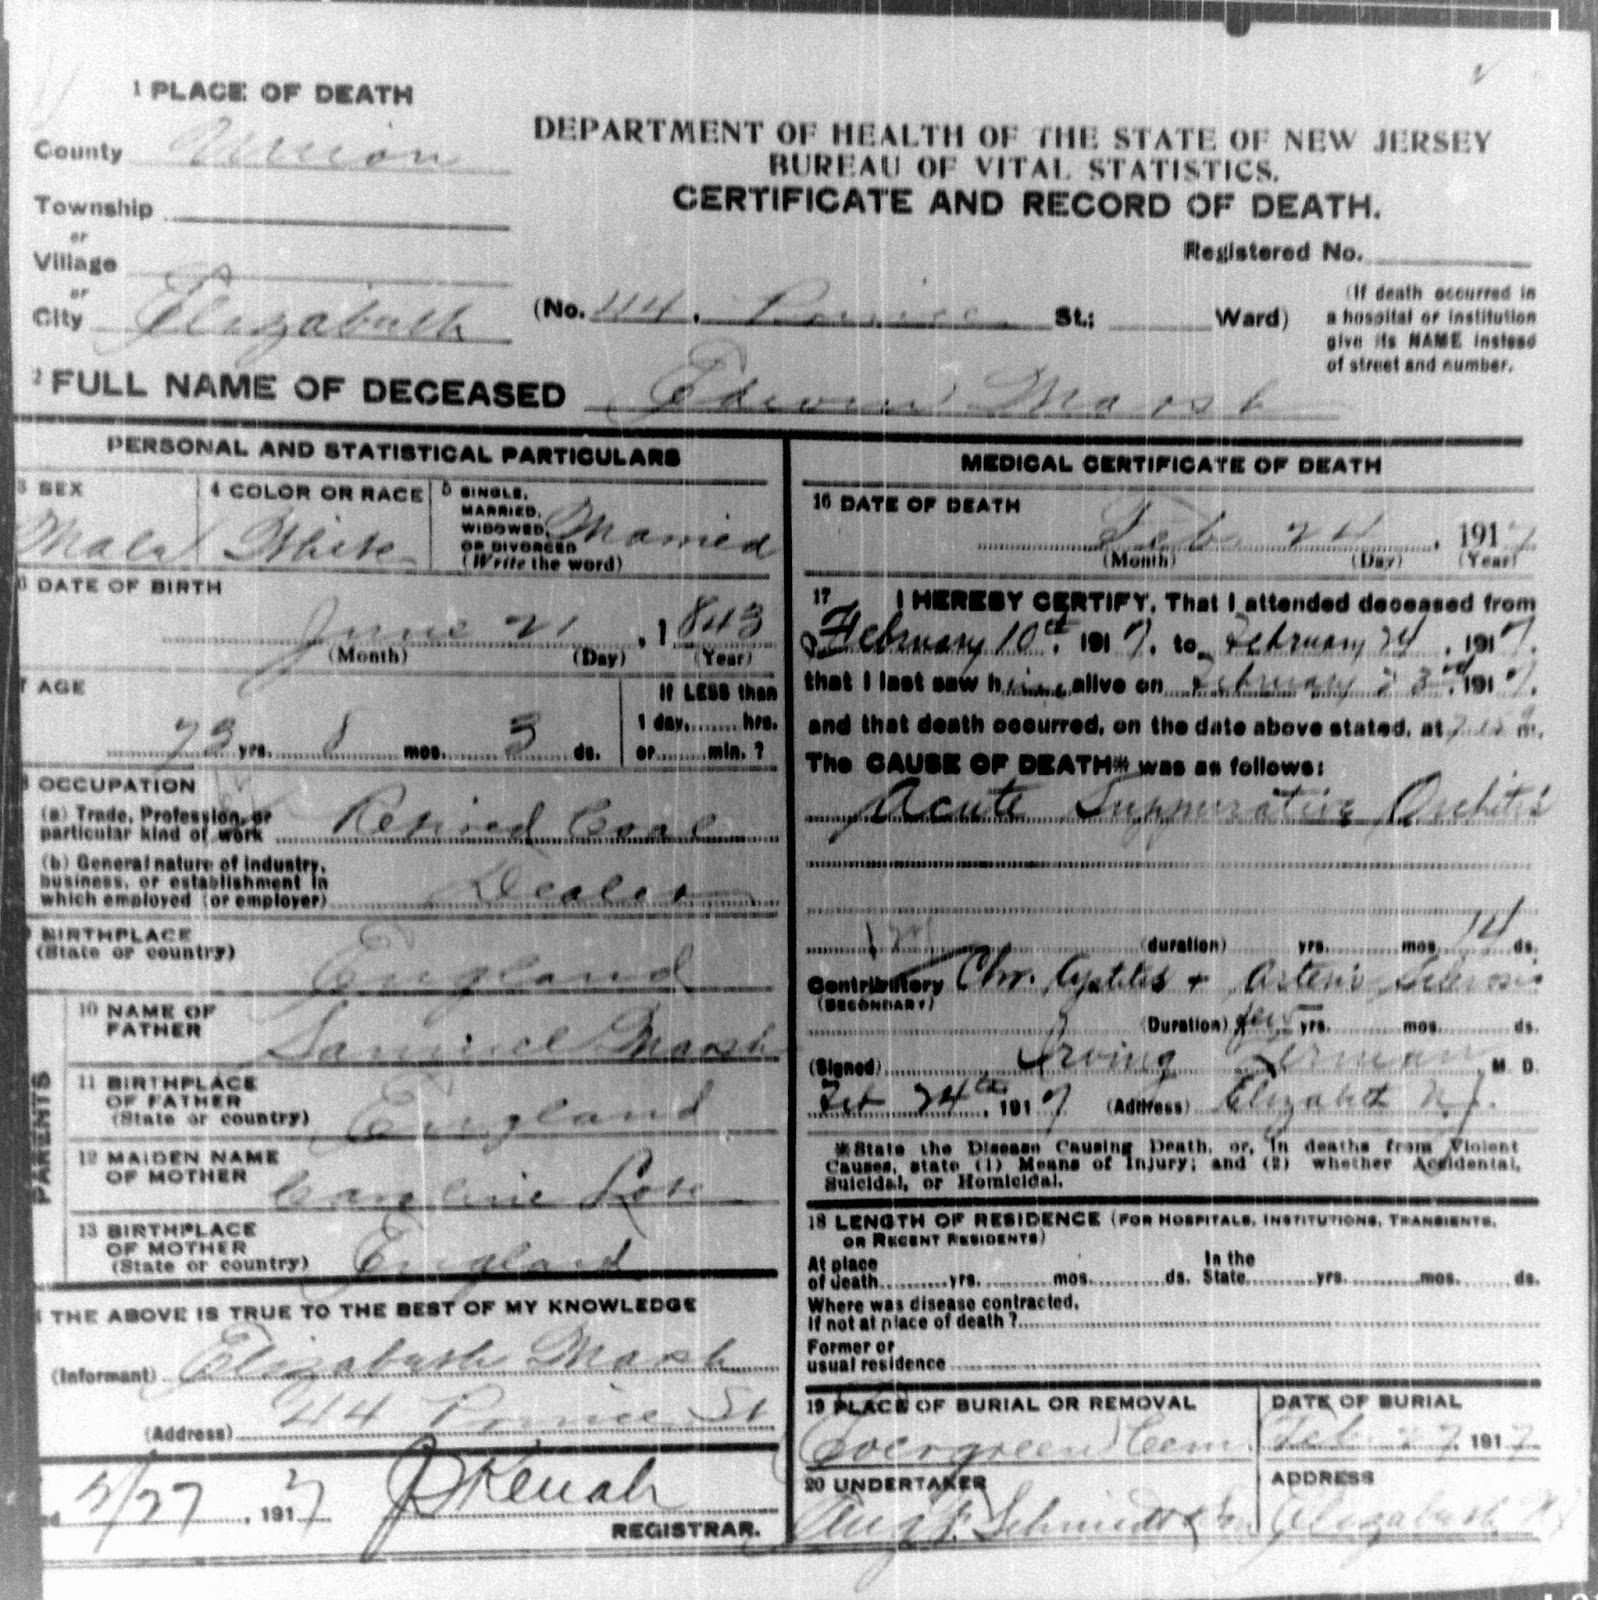 1 PLACE OF DEATH
County Union
Township
or
Village
or
City Elizabeth
DEPARTMENT OF HEALTH OF THE STATE OF NEW JERSEY
BUREAU OF VITAL STATISTICS.
CERTIFICATE AND RECORD OF DEATH.
Registered No.
(No. 44. St.; Ward)
(If death occurred in
a hospital or institution
give its NAME instead
of street and number.
2 FULL NAME OF DECEASED Edwin Marsh
PERSONAL AND STATISTICAL PARTICULARS
3 SEX
Male
4 COLOR OR RACE
White
5 SINGLE,
MARRIED,
WIDOWED,
OR DIVORCED
(Write the word)
Married
6 DATE OF BIRTH
June 21, 1843
(Month) (Day) (Year)
7 AGE
73 yrs. 8 mos. 3 ds.
If LESS than
1 day, hrs.
or min. ?
OCCUPATION
(a) Trade, Profession, or
particular kind of work Retired Coal
(b) General nature of industry,
business, or establishment in
which employed (or employer) Dealer
BIRTHPLACE
(State or country)
England
PARENTS
10 NAME OF
FATHER
Samuel Marsh
11 BIRTHPLACE
OF FATHER
(State or country)
England
12 MAIDEN NAME
OF MOTHER
Caroline
13 BIRTHPLACE
OF MOTHER
(State or country)
England
THE ABOVE IS TRUE TO THE BEST OF MY KNOWLEDGE
(Informant) Elizabeth Marsh
(Address) 44 St
2/27, 1917
J Kenah
REGISTRAR.
MEDICAL CERTIFICATE OF DEATH
16 DATE OF DEATH
Feb. 24, 1917
(Month) (Day) (Year)
17 I HEREBY CERTIFY, That I attended deceased from
February 10th, 1917, to February 24, 1917,
that I last saw him alive on February 23rd, 1917,
and that death occurred, on the date above stated, at m.
The CAUSE OF DEATH* was as follows:
Acute Suppurative Orchitis
(duration) yrs. mos. 14 ds.
Contributory Chr. Cystitis + Arterio Sclerosis
(SECONDARY)
(Duration) few yrs. mos. ds.
(Signed) Irving Lerman M. D.
Feb 24th, 1917 (Address) Elizabeth N.J.
*State the Disease Causing Death, or, in deaths from Violent
Causes, state (1) Means of Injury; and (2) whether Accidental,
Suicidal, or Homicidal.
18 LENGTH OF RESIDENCE (FOR HOSPITALS, INSTITUTIONS, TRANSIENTS,
OR RECENT RESIDENTS)
At place
of death yrs. mos. ds.
In the
State yrs. mos. ds.
Where was disease contracted,
if not at place of death ?
Former or
usual residence
19 PLACE OF BURIAL OR REMOVAL
Evergreen Cem.
DATE OF BURIAL
Feb. 27, 1917
20 UNDERTAKER
Aug. F. Schmidt & Son
ADDRESS
Elizabeth NJ